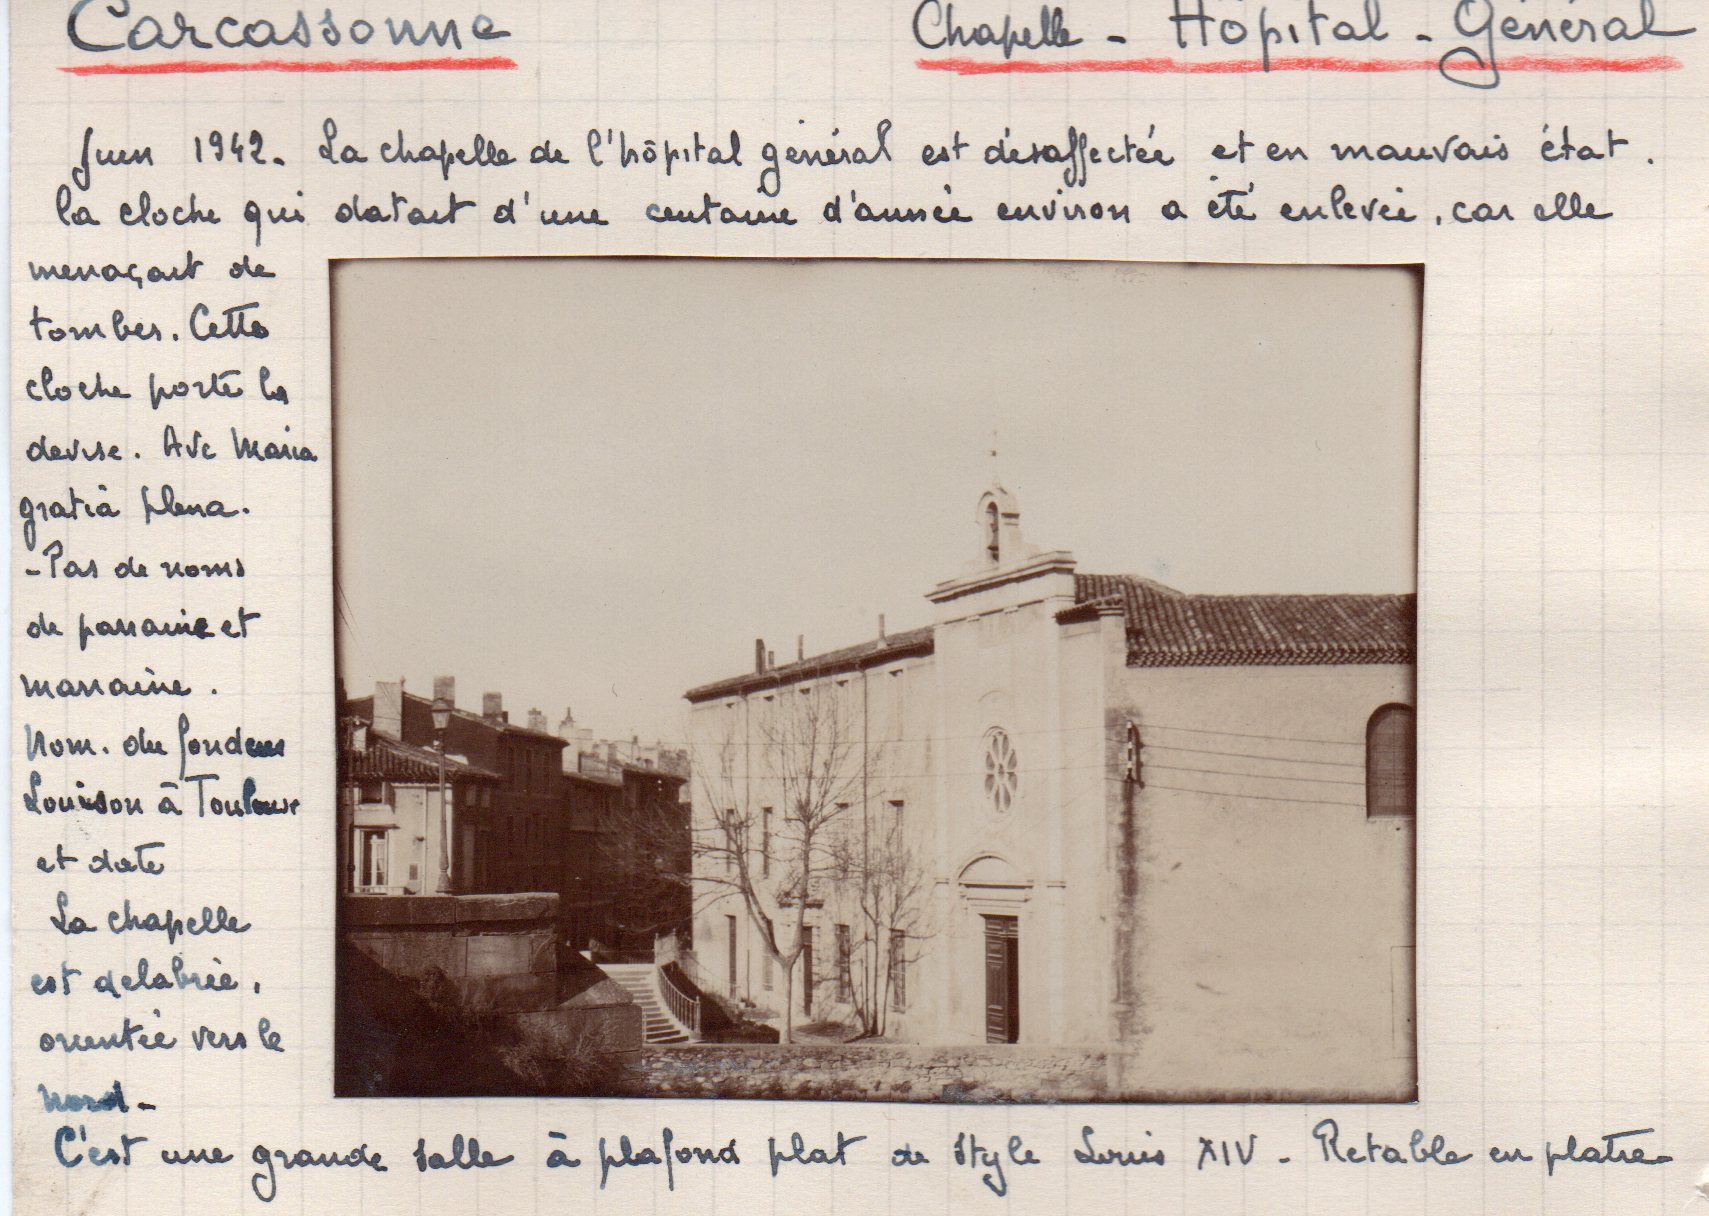 Carcassonne
Chapelle - Hôpital - Général
Juin 1942. La chapelle de l'hôpital général est désaffectée et en mauvais état.
la cloche qui datait d'une centaine d'année environ a été enlevée, car elle
menaçait de
tomber. Cette
cloche porte la
devise. Ave Maria
gratià plena.
- Pas de noms
de parraine et
marraine.
Nom. du fondeur
Louison à Toulouse
et date
La chapelle
est delabrée,
orientée vers le
Nord -
C'est une grande salle à plafond plat de style Louis XIV - Retable en platre